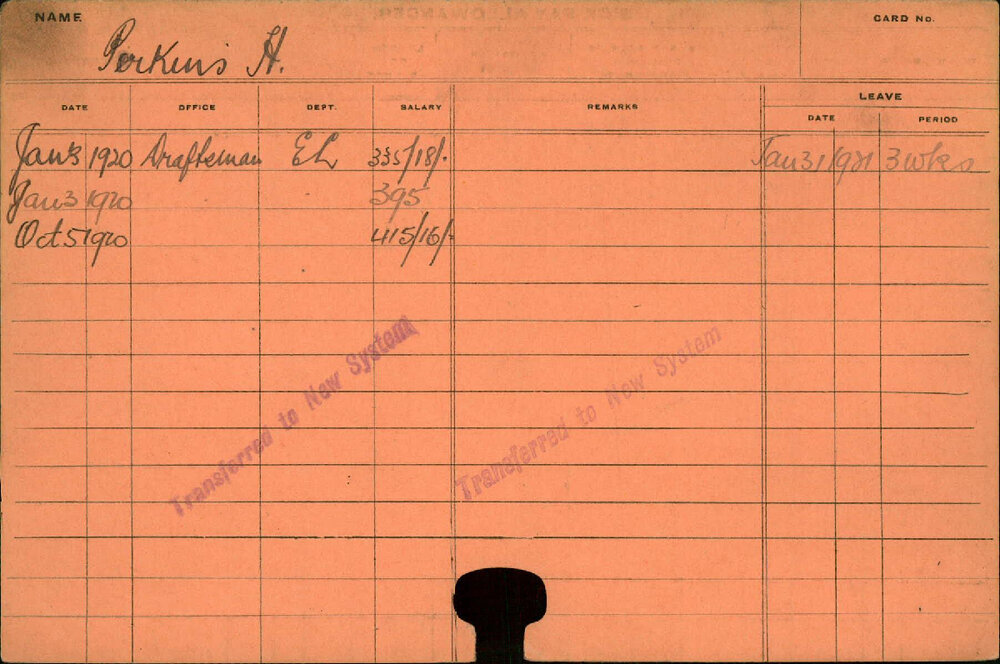 NAME
CARD NO.
Perkins H.
DATE OFFICE DEPT. SALARY REMARKS LEAVE
DATE PERIOD
Jan 3 1920 Draftsman EL 335/18/- Jan 31 1921 3 wks
Jan 3 1920 395
Oct 5 1920 415/16/-
Transferred to New System
Transferred to New System